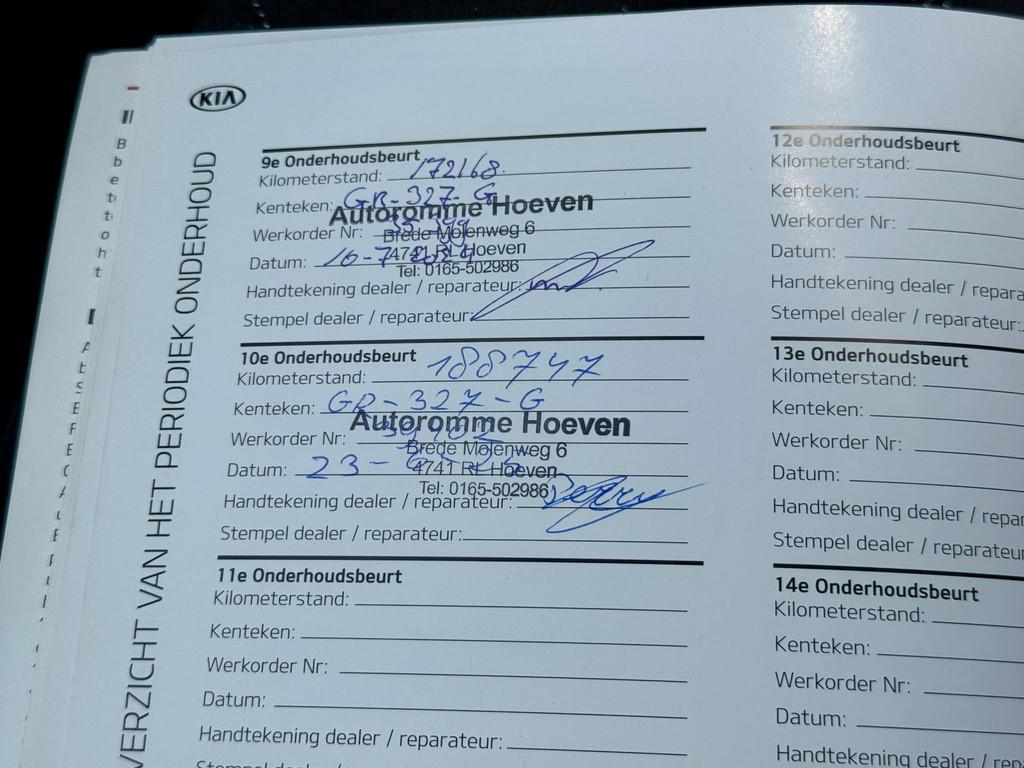 KIA
OVERZICHT VAN HET PERIODIEK ONDERHOUD
9e Onderhoudsbeurt
Kilometerstand: 172168
Kenteken: GR-327-G
Autoromme Hoeven
Werkorder Nr:
Brede Molenweg 6
4741 RL Hoeven
Datum: 16-7-2024
Tel: 0165-502986
Handtekening dealer / reparateur:
Stempel dealer / reparateur:
10e Onderhoudsbeurt
Kilometerstand: 188747
Kenteken: GR-327-G
Autoromme Hoeven
Werkorder Nr:
Brede Molenweg 6
4741 RL Hoeven
Datum: 23-
Tel: 0165-502986
Handtekening dealer / reparateur:
Stempel dealer / reparateur:
11e Onderhoudsbeurt
Kilometerstand:
Kenteken:
Werkorder Nr:
Datum:
Handtekening dealer / reparateur:
Stempel dealer / reparateur:
12e Onderhoudsbeurt
Kilometerstand:
Kenteken:
Werkorder Nr:
Datum:
Handtekening dealer / repara
Stempel dealer / reparateur:
13e Onderhoudsbeurt
Kilometerstand:
Kenteken:
Werkorder Nr:
Datum:
Handtekening dealer / repar
Stempel dealer / reparateur
14e Onderhoudsbeurt
Kilometerstand:
Kenteken:
Werkorder Nr:
Datum:
Handtekening dealer / re